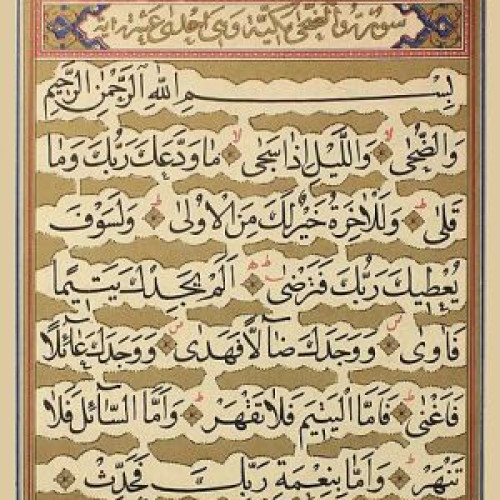 سورة والضحى مكية وهى احدى عشرة اية
بِسْمِ اللّٰهِ الرَّحْمٰنِ الرَّحِيمِ
وَالضُّحٰى وَالَّيْلِ اِذَا سَجٰى مَا وَدَّعَكَ رَبُّكَ وَمَا
قَلٰى وَلَلْاٰخِرَةُ خَيْرٌ لَكَ مِنَ الْاُولٰى وَلَسَوْفَ
يُعْطِيكَ رَبُّكَ فَتَرْضٰى اَلَمْ يَجِدْكَ يَتِيمًا
فَاٰوٰى وَوَجَدَكَ ضَاۤلًّا فَهَدٰى وَوَجَدَكَ عَاۤئِلًا
فَاَغْنٰى فَاَمَّا الْيَتِيمَ فَلَا تَقْهَرْ وَاَمَّا السَّاۤئِلَ فَلَا
تَنْهَرْ وَاَمَّا بِنِعْمَةِ رَبِّكَ فَحَدِّثْ